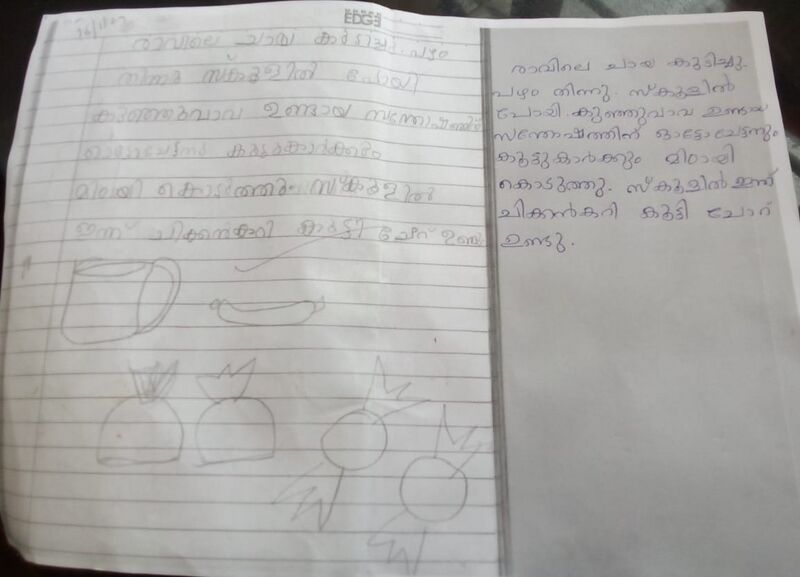 EDGE
രാവിലെ ചായ കുടിച്ചു. പഴം
തിന്നു സ്കൂളിൽ പോയി
കുഞ്ഞുവാവ ഉണ്ടായ
മിഠായി കൊടുത്തു സ്കൂളിൽ
ഇന്ന് ചിക്കൻകറി കൂട്ടി ചോറ് ഉണ്ടു
രാവിലെ ചായ കുടിച്ചു.
പഴം തിന്നു. സ്കൂളിൽ
പോയി. കുഞ്ഞുവാവ ഉണ്ടായ
സന്തോഷത്തിന് ഓട്ടോചേട്ടനും
കൂട്ടുകാർക്കും മിഠായി
കൊടുത്തു. സ്കൂളിൽ ഇന്ന്
ചിക്കൻകറി കൂട്ടി ചോറ്
ഉണ്ടു.